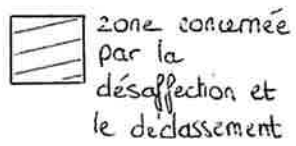 zone concernée
par la
désaffection et
le déclassement